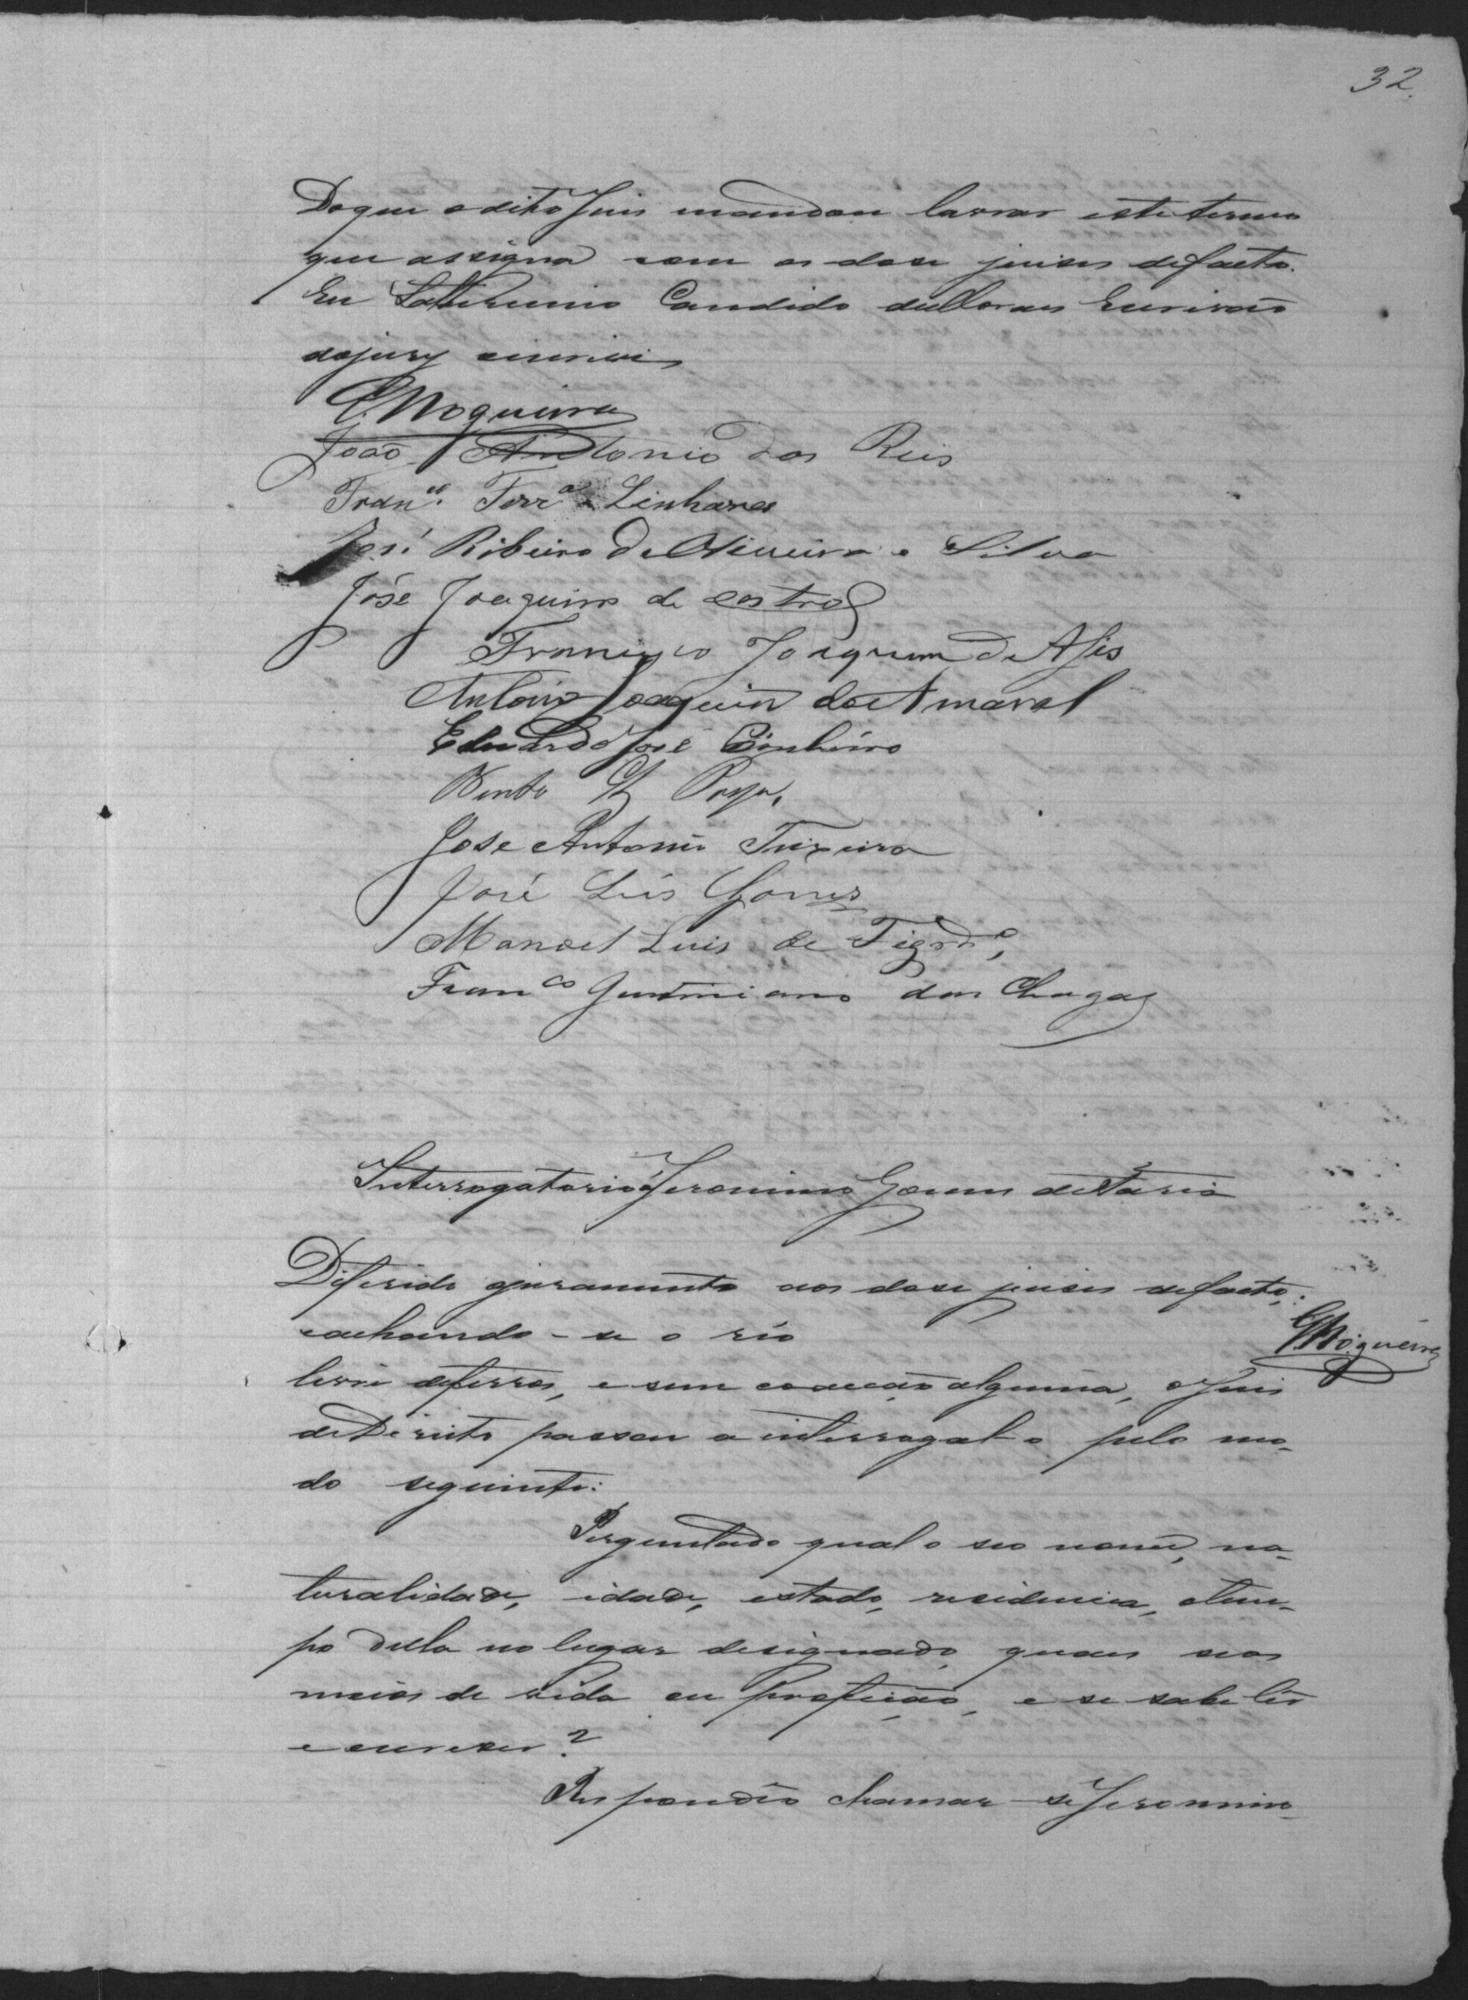 32.
Do que o dito Juis mandou lavrar este termo
que assigna com os dose juises de facto.
Eu Saturnino Candido de Moraes Escrivão
do jury escrivi
C. Nogueira
João Antonio dos Reis
Fran.co Ferr.a Linhares
José Ribeiro de Oliveira e Silva
José Joaquim de Castro
Francisco Joaquim de Assis
Antonio Joaquim do Amaral
Eduardo José Pinheiro
Bento
Jose Antonio Teixeira
José Luis Gomes
Manoel Luis de Figrdo,
Fran.co Justiniano das Chagas
Interrogatorio Jeronimo Gomes de Faria
Diferido o juramento aos dose juises de facto,
e achando-se o réo
C. Nogueira
livre de ferros, e sem coacção alguma, o Juis
de Direito passou a interrogal-o pelo mo-
do seguinte:
Perguntado qual o seo nome, na-
turalidade, idade, estado, residencia, e tem-
po della no lugar designado, quaes seos
meios de vida ou profição, e se sabe lêr
e escrever?
Respondêo chamar-se Jeronimo